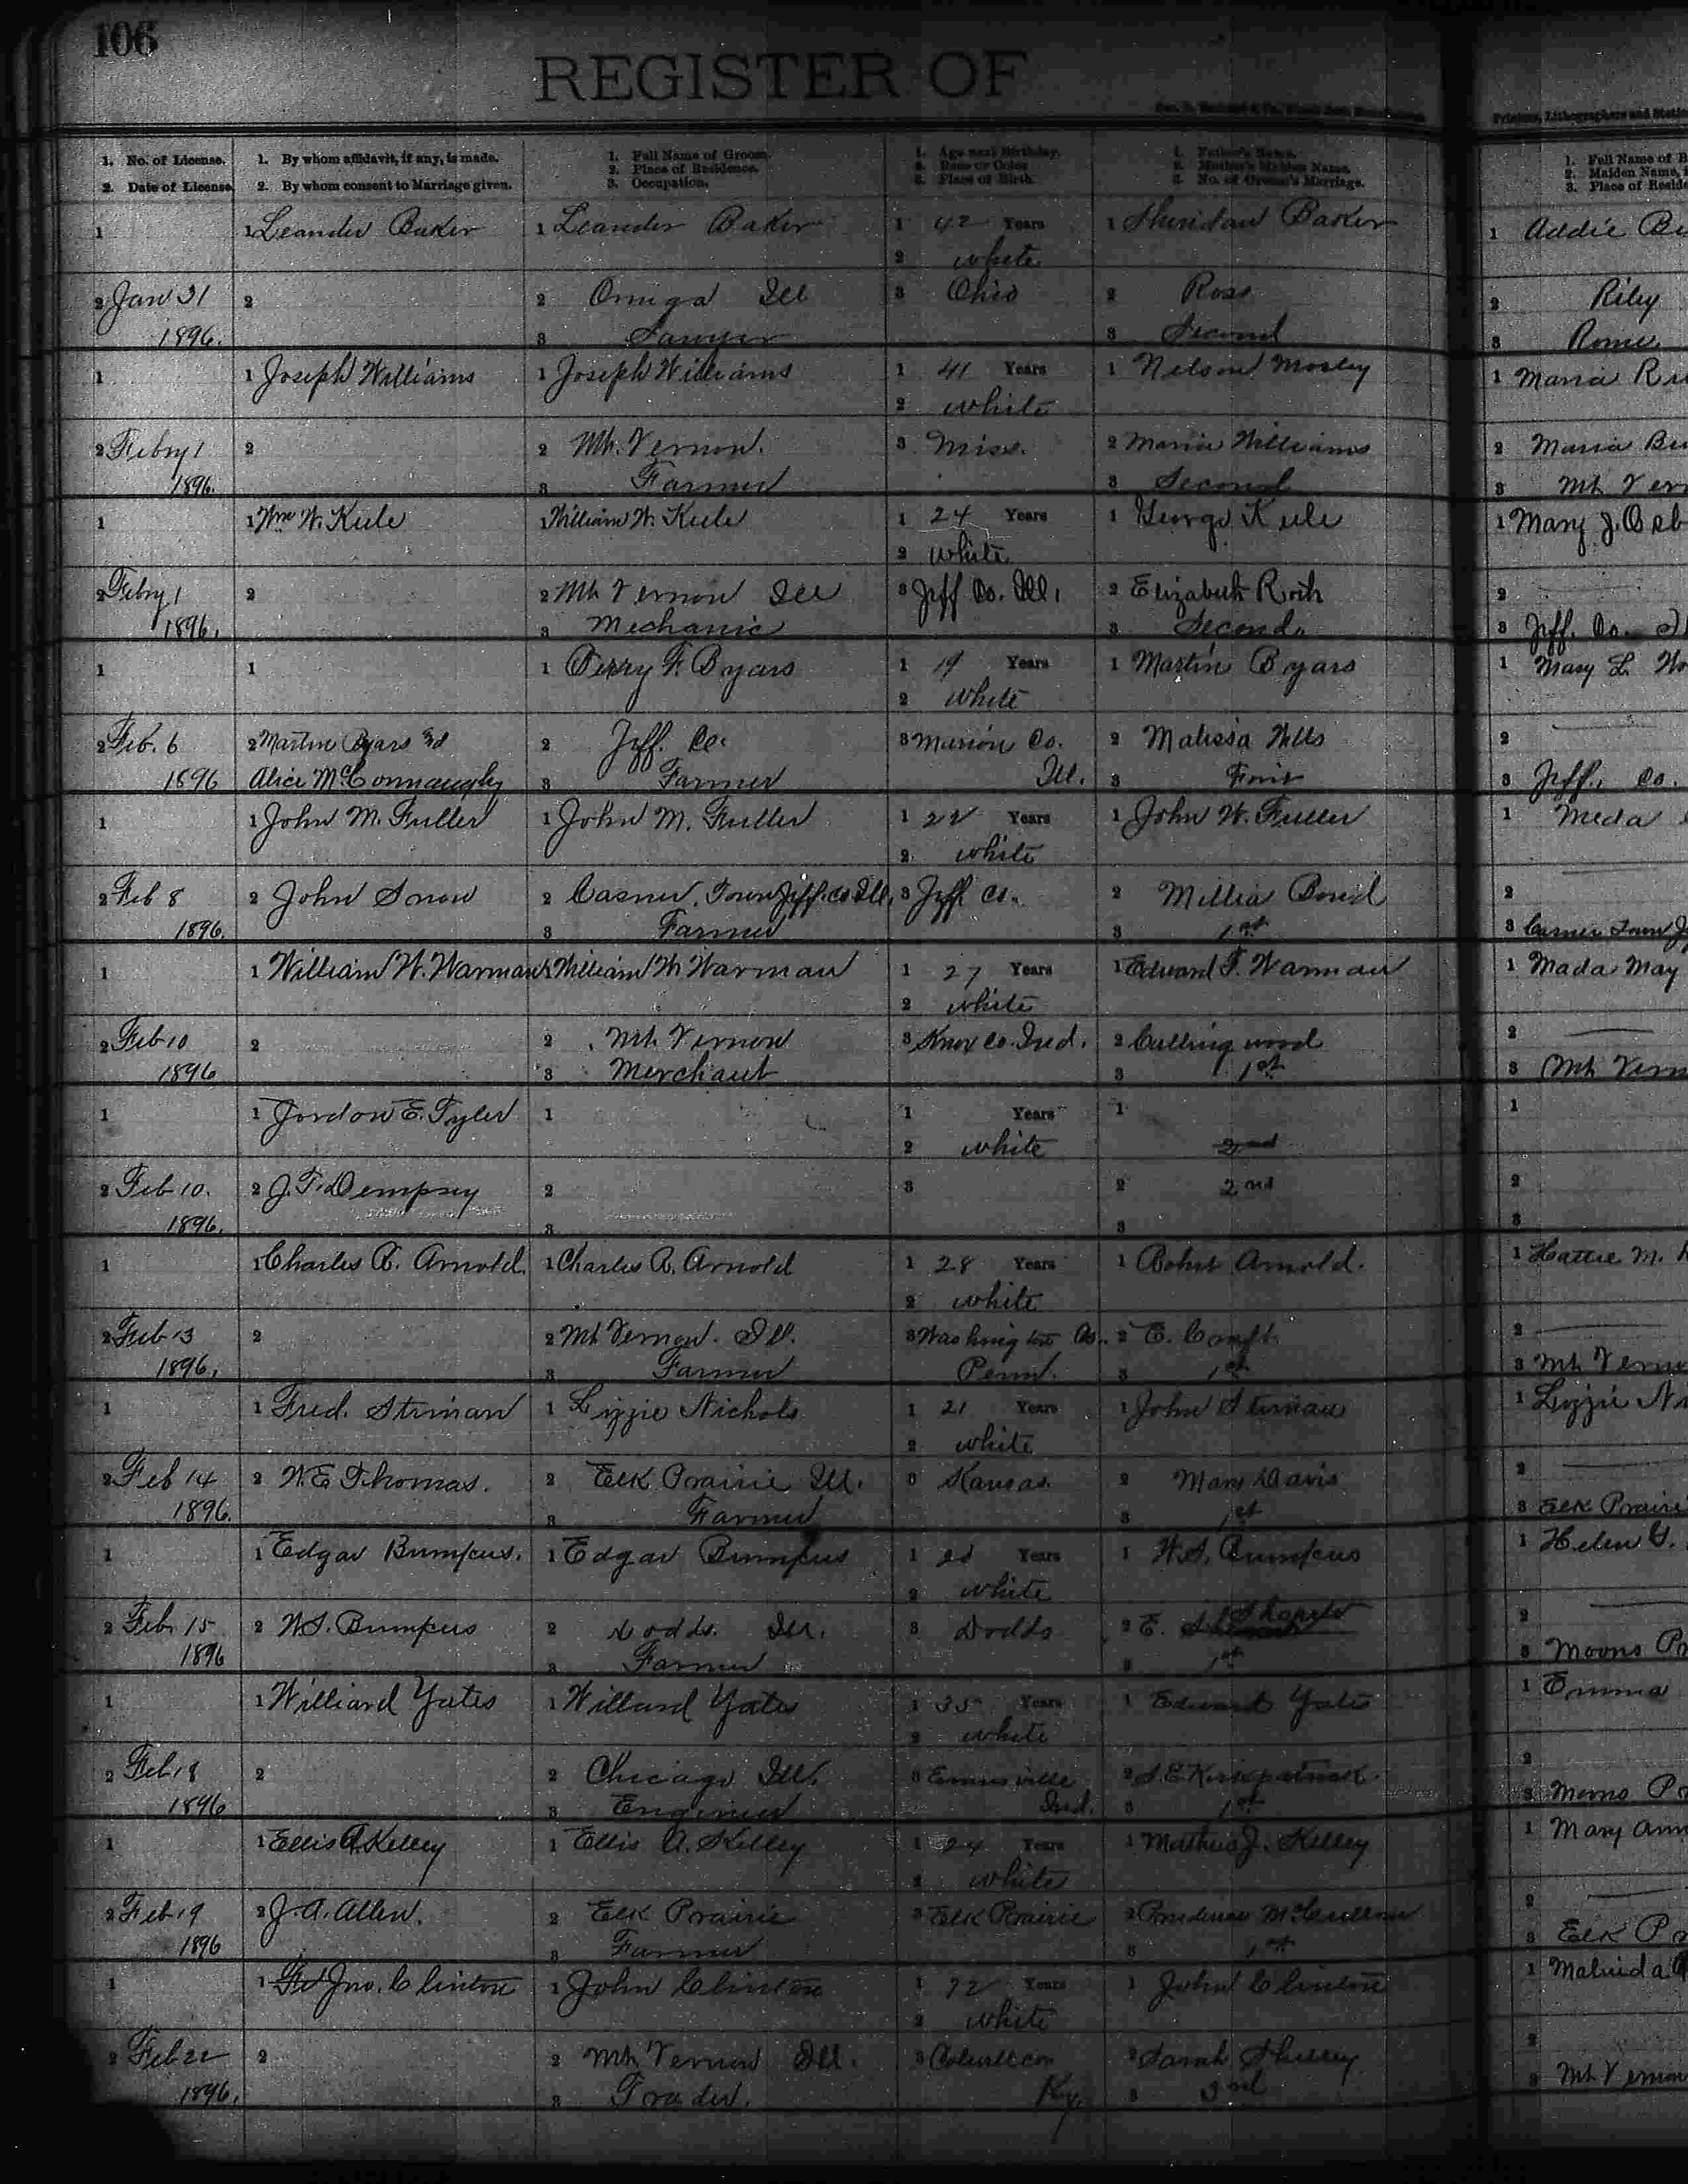 106
REGISTER OF
1. No. of License.
2. Date of License.
1. By whom affidavit, if any, is made.
2. By whom consent to Marriage given.
1. Full Name of Groom.
2. Place of Residence.
3. Occupation.
1. Age next Birthday.
2. Race or Color
3. Place of Birth.
1. Father's Name.
2. Mother's Maiden Name.
3. No. of Groom's Marriage.
Printers, Lithographers and
1. Full Name of
2. Maiden Name,
3. Place of
1 1 Leander Baker 1 Leander Baker 1 42 Years 1 Sheridan Baker 1 Addie
2 white
2 Jan 31 2 2 Omega Ill 3 Ohio 2 Ross 2 Riley
1896. 3 Sawyer 3 Second 3 Rome
1 1 Joseph Williams 1 Joseph Williams 1 41 Years 1 Nelson Mosley 1 Maria
2 white
2 Febry 1 2 2 Mt. Vernon. 3 Miss. 2 Maria Williams 2 Maria
1896. 3 Farmer 3 Second 3 Mt Ver
1 1 Wm W. Kule 1 William W. Kule 1 24 Years 1 George Kule 1 Mary J.
2 white
2 Febry 1 2 2 Mt Vernon Ill 3 Jeff Co. Ill. 2 Elizabeth Roth 2
1896. 3 Mechanic 3 Second. 3 Jeff. Co.
1 1 1 Perry F. Byars 1 19 Years 1 Martin Byars 1 Mary L.
2 white
2 Feb. 6 2 Martin Byars 2 Jeff. Co. 3 Marion Co. 2 Malissa Wells 2
1896 Alice McConnaughy 3 Farmer Ill. 3 First 3 Jeff. Co.
1 1 John M. Fuller 1 John M. Fuller 1 22 Years 1 John W. Fuller 1 Meda
2 white
2 Feb 8 2 John Snow 2 Casner Town Jeff. Co Ill. 3 Jeff Co. 2 Millia 2
1896. 3 Farmer 3 1st 3 Casner Town
1 1 William W. Warman 1 William W Warman 1 27 Years 1 Edward F. Warman 1 Mada May
2 white
2 Feb 10 2 2 Mt. Vernon 3 Knox Co. Ind. 2 Culling wood 2
1896 3 Merchant 3 1st 3 Mt Vern
1 1 Jordon E. Tyler 1 1 Years 1 1
2 white 2nd
2 Feb 10. 2 J. T. Dempsey 2 3 2 2nd 2
1896. 3 3 3
1 1 Charles R. Arnold. 1 Charles R. Arnold 1 28 Years 1 Robert Arnold. 1 Hattie M.
2 white
2 Feb 13 2 2 Mt Vernon. Ill. 3 Washington Co. 2 E. 2
1896. 3 Farmer Penn. 3 1st 3 Mt Verno
1 1 Fred. Strinan 1 Lizzie Nichols 1 21 Years 1 John 1 Lizzie
2 white
2 Feb 14 2 W. E Thomas. 2 Elk Prairie Ill. 3 Kansas. 2 Mary Davis 2
1896. 3 Farmer 3 1st 3 Elk Prairi
1 1 Edgar Bumpus. 1 Edgar Bumpus 1 21 Years 1 W. S. Bumpus 1 Helen G.
2 white
2 Feb 15 2 W. S. Bumpus 2 Dodds. Ill. 3 Dodds 2 E. 2
1896 3 Farmer 3 1st 3 Moons
1 1 Williard Yates 1 Willard Yates 1 35 Years 1 Edward Yates 1 Emma
2 white
2 Feb 18 2 2 Chicago Ill. 3 Evansville 2 S. E Kirkpatrick. 2
1896 3 Engineer Ind. 3 1st 3
1 1 Ellis A. Kelley 1 Ellis A. Kelley 1 24 Years 1 Mathew J. Kelley 1 Mary Ann
2 white
2 Feb 19 2 J. A. Allen. 2 Elk Prairie 3 Elk Prairie 2 Prudence McCullom 2
1896 3 Farmer 3 1st 3 Elk P
1 1 Jno. Clinton 1 John Clinton 1 72 Years 1 John Clinton 1 Malinda
2 white
2 Feb 22 2 2 Mt. Vernon Ill. 3 2 Sarah 2
1896. 3 Trader. Ky. 3 3rd 3 Mt Vernon